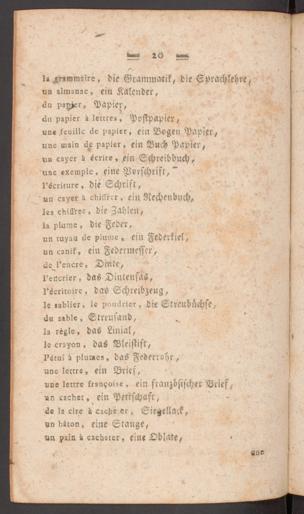 20
la grammaire, die Grammatik, die Sprachlehre,
un almanac, ein Kalender,
du papier, Papier,
du papier à lettres, Postpapier,
une feuille de papier, ein Bogen Papier,
une main de papier, ein Buch Papier,
un cayer à écrire, ein Schreibbuch,
une exemple, eine Vorschrift,
l'écriture, die Schrift,
un cayer à chiffrer, ein Rechenbuch,
les chiffres, die Zahlen,
la plume, die Feder,
un tuyau de plume, ein Federkiel,
un canif, ein Federmesser,
de l'encre, Dinte,
l'encrier, das Dintenfaß,
l'écritoire, das Schreibzeug,
le sablier, le poudrier, die Streubüchse,
du sable, Streusand,
la règle, das Linial,
le crayon, das Bleistift,
l'étui à plumes, das Federrohr,
une lettre, ein Brief,
une lettre françoise, ein französischer Brief,
un cachet, ein Pettschaft,
de la cire à cacheter, Siegellack,
un bâton, eine Stange,
un pain à cacheter, eine Oblate,
une